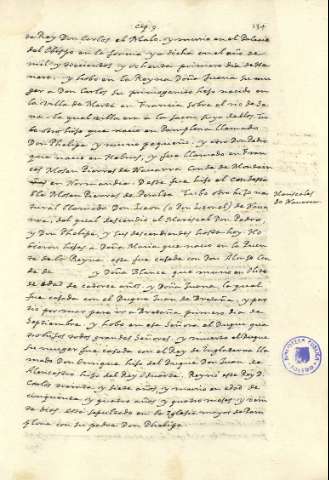 Cap. 9. 134
de Rey Don Carlos el Malo. y murio en el Palacio
del Obispo en la forma ya dicha en el año de
mil y trecientos y ochenta primero dia de He-
nero. y hobo en la Reyna Doña Juana su mu-
ger a Don Carlos su primogenito hijo nacido en
la villa de Mante en Francia sobre el rio de Se-
na. la qual villa era a la saçon suya
otro hijo que nacio en Pamplona llamado
Don Phelipe y murio pequeño. y otro Don Pedro
que nacio en y fue llamado en Fran-
ces Mosen Pierres de Navarra Conde de Mortain
en Normandia. Deste fue hijo el Condesta-
ble Mosen Pierres de Peralta. Tubo otro hijo na-
tural llamado Don Leon (o Don Leonel) de Na-
varra, del qual descendio el Mariscal Don Pedro,
y Don Phelipe, y sus descendientes hasta hoy. Ho-
bieron hijas a Doña Maria que nacio en la Puen-
te de la Reyna. esta fue casada con Don Alonso Con-
de de y Doña Blanca que murio en Olite
de edad de catorce años. y Doña Juana, la qual
fue casada con el Duque Juan de Bretaña, y par-
tio por mar para ir a Bretaña primero dia de
Septiembre. y hobo en esta Señora el Duque qua-
tro hijos todos grandes Señores. y muerto el Duque
su muger fue casada con el Rey de Inglaterra lla-
mado Don Enrrique hijo del Duque Don Juan de
Alencastre hijo del Rey Eduarte. Reyno este Rey D.
Carlos treinta y siete años, y murio en edad de
cinquenta y quatro años y quatro meses, y
dias. esta sepultado en la Iglesia mayor de Pam-
plona con su padre Don Phelipe.
Mariscales
de Navarra